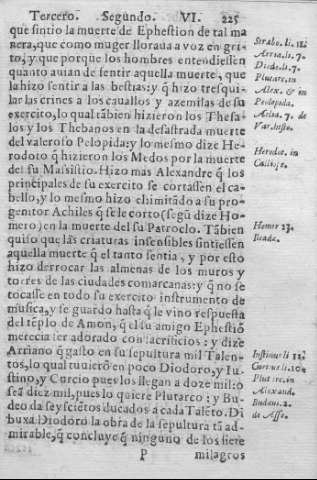 Tercero. Segundo. VI. 225
que sintio la muerte de Ephestion de tal ma
nera, que como muger lloraua a voz en gri-
to, y porque los hombres entendiessen
quanto auian de sentir aquella muerte, que
la hizo sentir a las bestias: y q̃ hizo tresqui-
lar las crines a los cauallos y azemilas de su
exercito, lo qual tãbien hizieron los Thesa-
los y los Thebanos en la desastrada muerte
del valeroso Pelopida: y lo mesmo dize He-
rodoto q̃ hizieron los Medos por la muerte
del su Massistio. Hizo mas Alexandre q̃ los
principales de su exercito se cortassen el ca-
bello, y lo mesmo hizo el imitãdo a su pro-
genitor Achiles q̃ se le corto (segũ dize Ho-
mero) en la muerte del su Patroclo. Tãbien
quiso que las criaturas insensibles sintiessen
aquella muerte q̃ el tanto sentia, y por esto
hizo derrocar las almenas de los muros y
torres de las ciudades comarcanas: y q̃ no se
tocasse en todo su exercito instrumento de
musica, y se guardo hasta q̃ le vino respuesta
del tẽplo de Amon, q̃ el su amigo Ephestiõ
merecia ser adorado con sacrificios: y dize
Arriano q̃ gasto en su sepultura mil Talen-
tos, lo qual tuuierõ en poco Diodoro, y Iu-
stino, y Curcio pues los llegan a doze mil: o
seã diez mil, pues lo quiere Plutarco: y Bu-
deo da seyscientos ducados a cada Talẽto. Di
buxa Diodoro la obra de la sepultura tã ad-
mirable, q̃ concluye q̃ ninguno de los siete
P milagros
Strabo. li. 11.
Arria. li. 7.
Diodo. li. 7.
Plutarc. in
Alex. & in
Pelopida.
Aelia. 7. de
Var. histo.
Herodo. in
Calliope.
Homer 23.
Iliade.
Iustinus li 12.
Curtius li. 10.
Plutarc. in
Alexand.
Budaeus. 2.
de Asse.